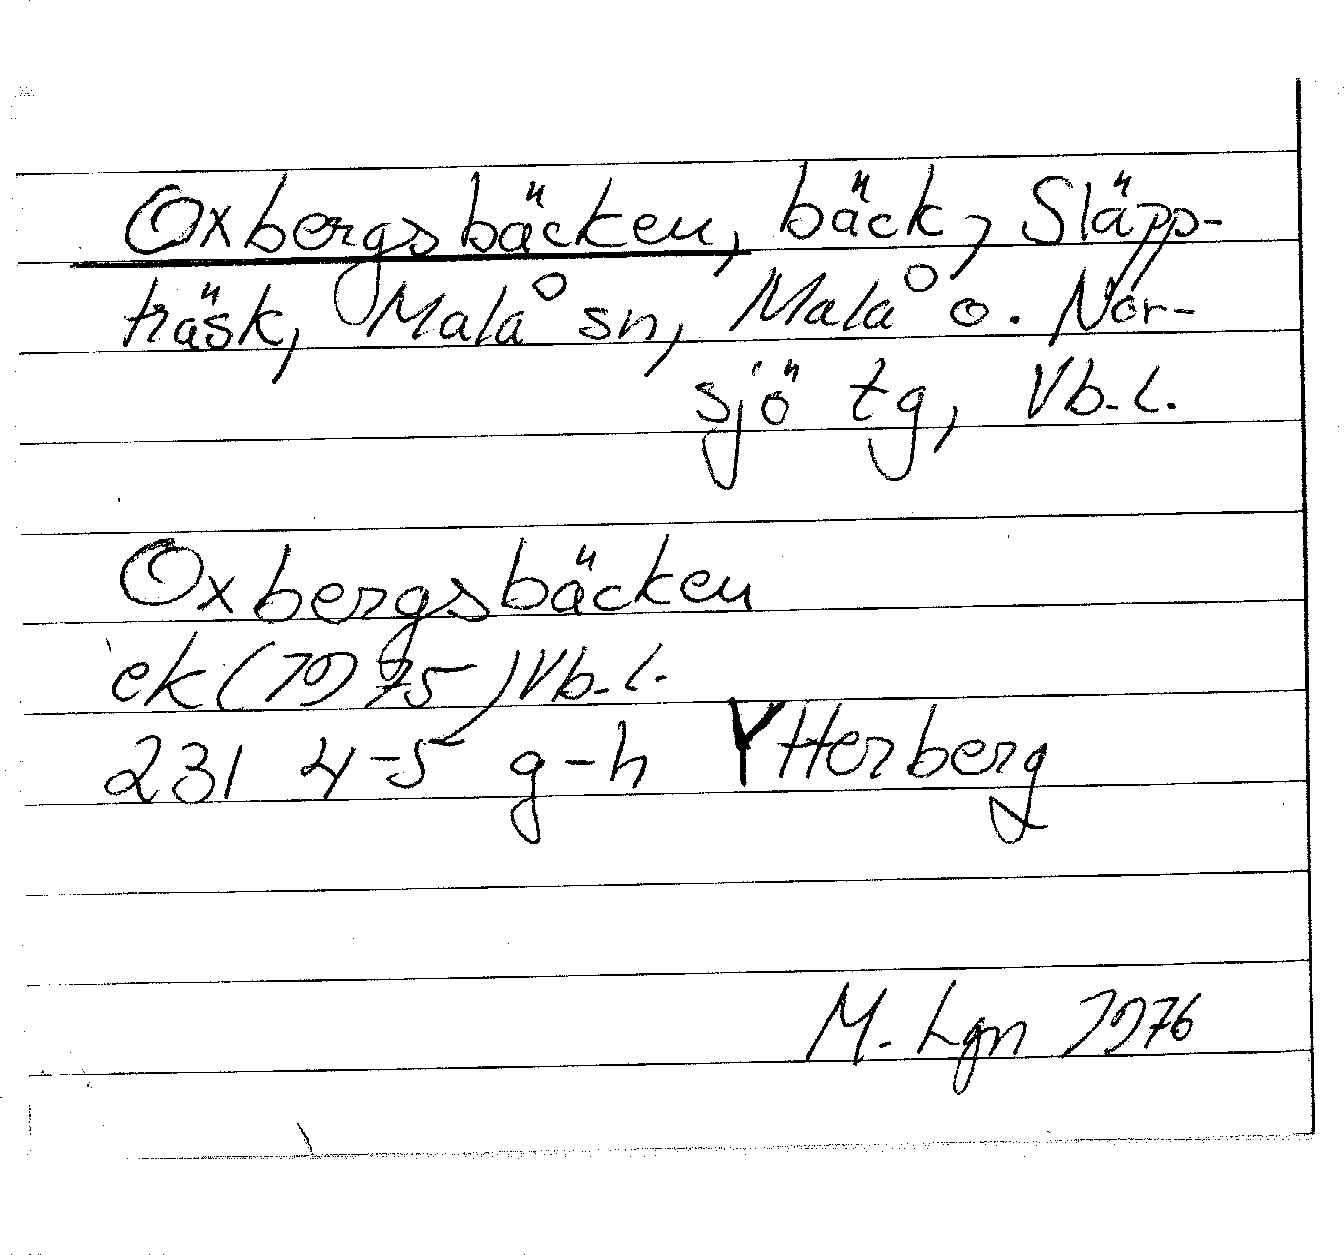 Oxbergsbäcken, bäck, Släpp-
träsk, Malå sn, Malå o. Nor-
sjö tg, Vb. l.
Oxbergsbäcken
ek (1975) Vb. l.
231 4-5 g-h Ytterberg
M. Lgn 1976